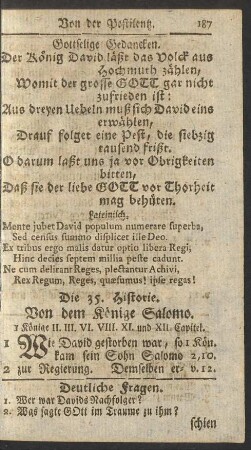 Von der Pestilentz. 187
Gottselige Gedancken.
Der König David läßt das Volck aus
Hochmuth zählen,
Womit der grosse GOTT gar nicht
zufrieden ist;
Aus dreyen Uebeln muß sich David eins
erwählen,
Drauf folget eine Pest, die siebzig
tausend frißt.
O darum laßt uns ja vor Obrigkeiten
bitten,
Daß sie der liebe GOTT vor Thorheit
mag behüten.
Lateinisch.
Mente jubet David populum numerare superba,
Sed census summo displicet ille Deo.
Ex tribus ergo malis datur optio libera Regi,
Hinc decies septem millia peste cadunt.
Ne cum delirant Reges, plectantur Achivi,
Rex Regum, Reges, quæsumus! ipse regas!
Die 35. Historie.
Von dem Könige Salomo.
1 Könige II. III. VI. VIII. XI. und XII. Capitel.
1 Wie David gestorben war, so 1 Kön.
kam sein Sohn Salomo 2, 10.
2 zur Regierung. Demselben er- v. 12.
Deutliche Fragen.
1. Wer war Davids Nachfolger?
2. Was sagte GOtt im Traume zu ihm?
schien